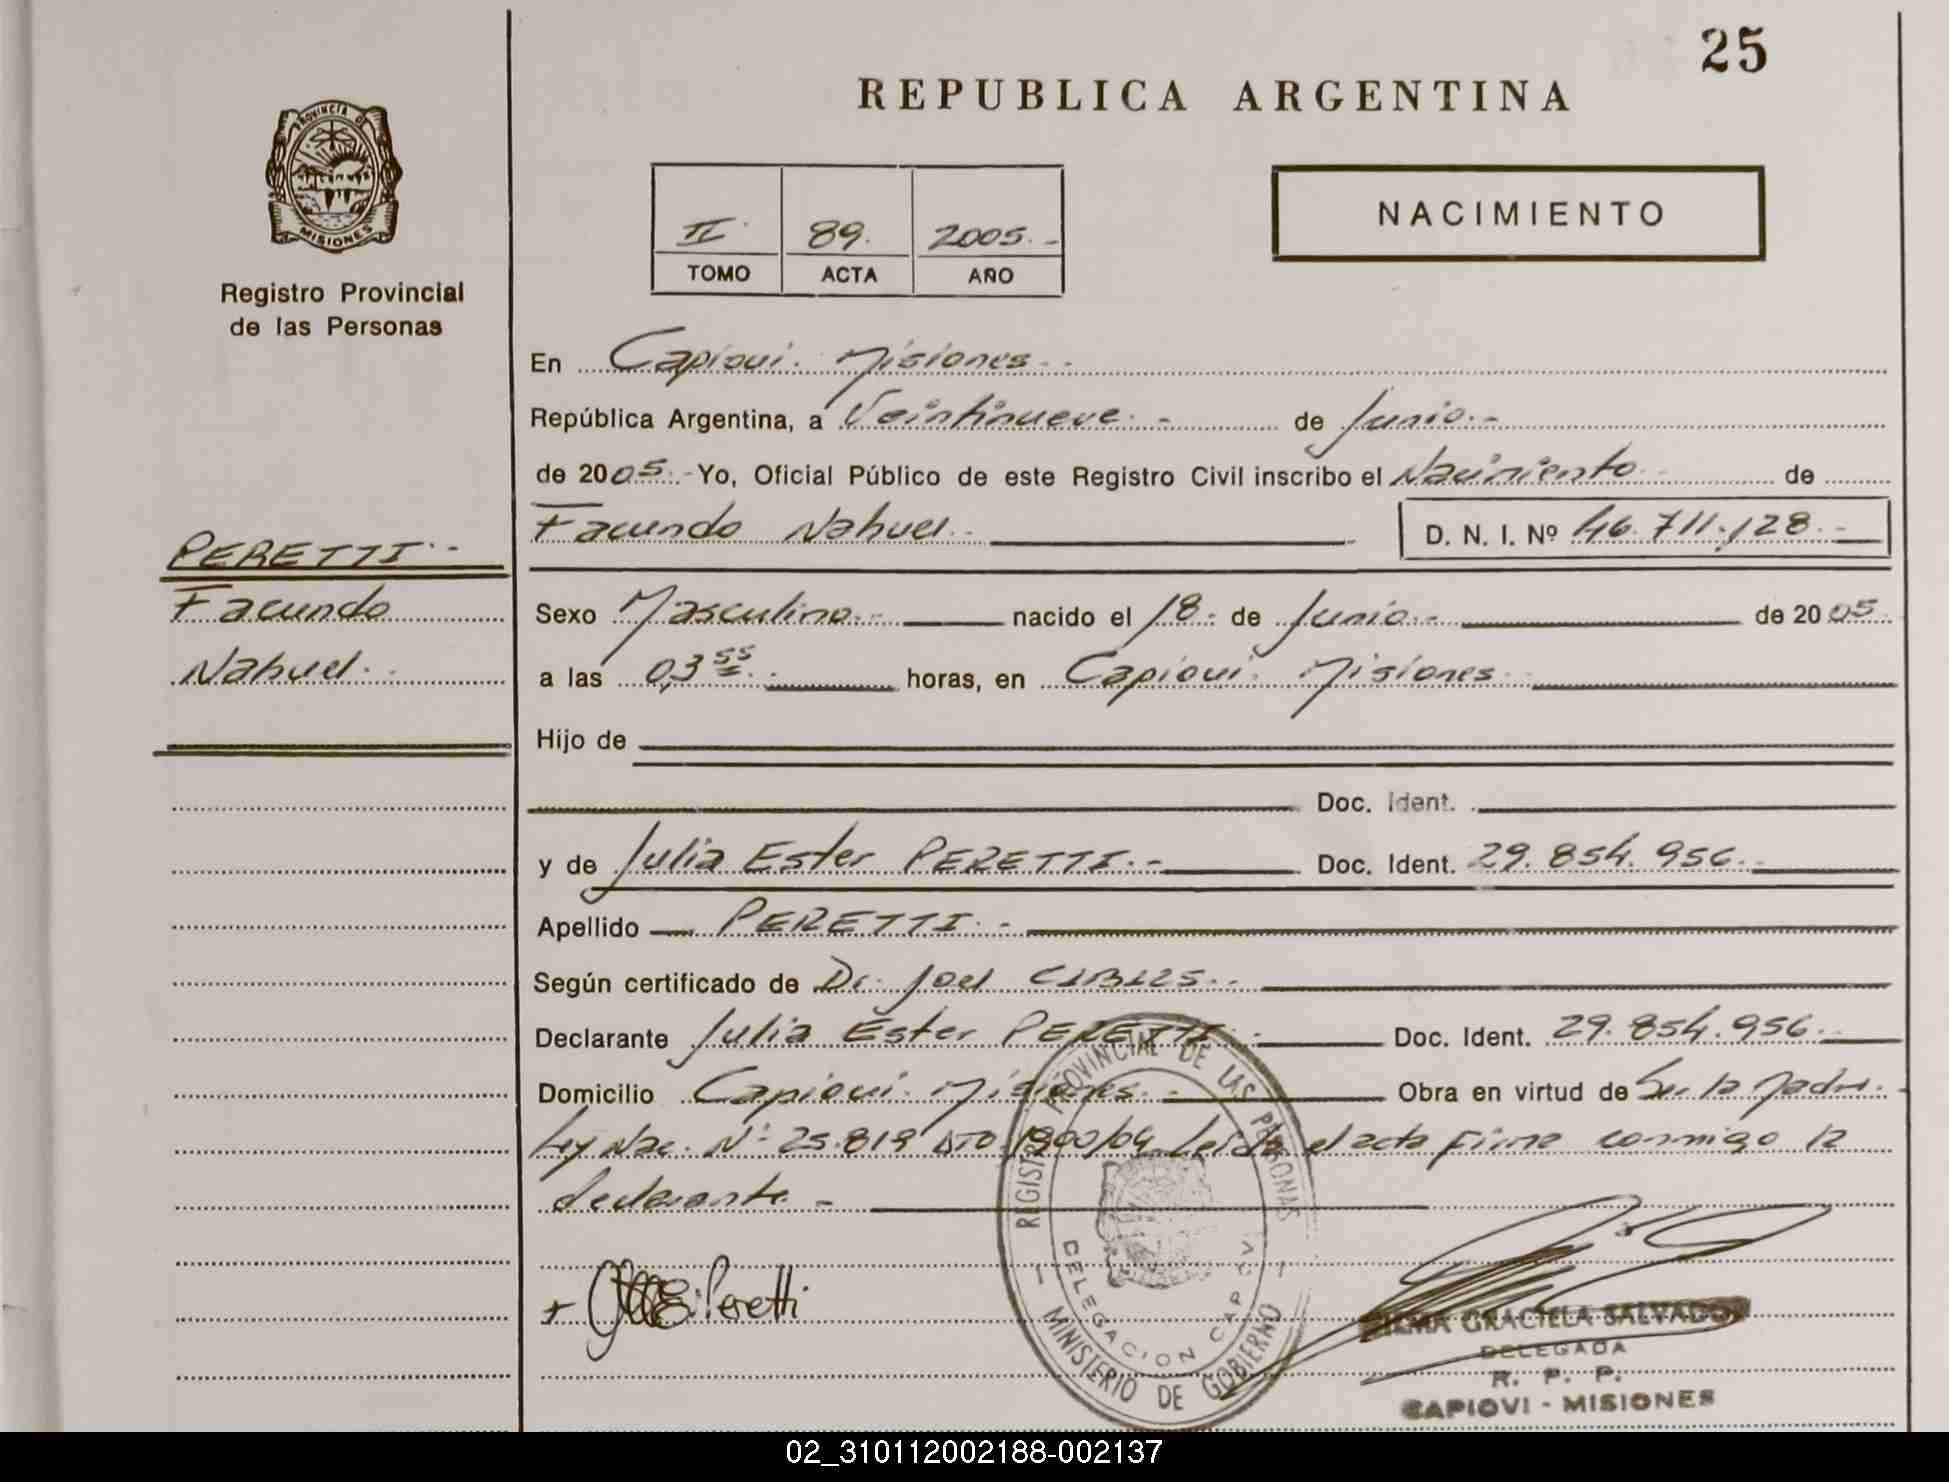 25
REPUBLICA ARGENTINA
PROVINCIA DE
MISIONES
Registro Provincial
de las Personas
II. 89. 2005.-
TOMO ACTA AÑO
NACIMIENTO
En Capiovi. Misiones.-
República Argentina, a Veintinueve.- de Junio.-
de 2005.- Yo, Oficial Público de este Registro Civil inscribo el Nacimiento de
Facundo Nahuel. D. N. I. Nº 46.711.128.-
PERETTI.-
Facundo
Nahuel.
Sexo Masculino.- nacido el 18. de Junio.- de 2005.
a las 03 55. horas, en Capiovi. Misiones.
Hijo de
Doc. Ident.
y de Julia Ester PERETTI.- Doc. Ident. 29.854.956.
Apellido PERETTI.-
Según certificado de Dr. Joel
Declarante Julia Ester PERETTI.- Doc. Ident. 29.854.956.
Domicilio Capiovi. Misiones.- Obra en virtud de Ser la Madre.-
Ley Nac. Nº 25.819 DTO. 1900/04. Leida el acta firma conmigo la
declarante.-
Peretti
REGISTRO PROVINCIAL DE LAS PERSONAS
DELEGACION CAPIOVI
MINISTERIO DE GOBIERNO
GRACIELA SALVADOR
DELEGADA
R. P. P.
CAPIOVI - MISIONES
02_310112002188-002137